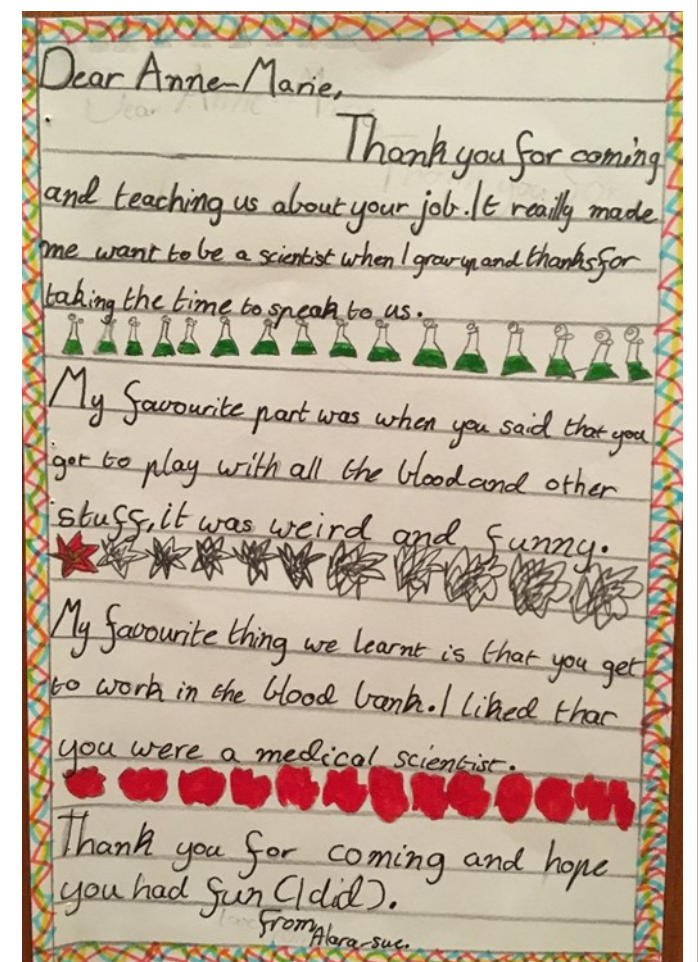 Dear Anne-Marie,
Thank you for coming
and teaching us about your job. It reailly made
me want to be a scientist when I grow up and thanks for
taking the time to speak to us.
My favourite part was when you said that you
got to play with all the blood and other
stuff, it was weird and funny.
My favourite thing we learnt is that you get
to work in the blood bank. I liked that
you were a medical scientist.
Thank you for coming and hope
you had fun (I did).
From,
Alara-sue.